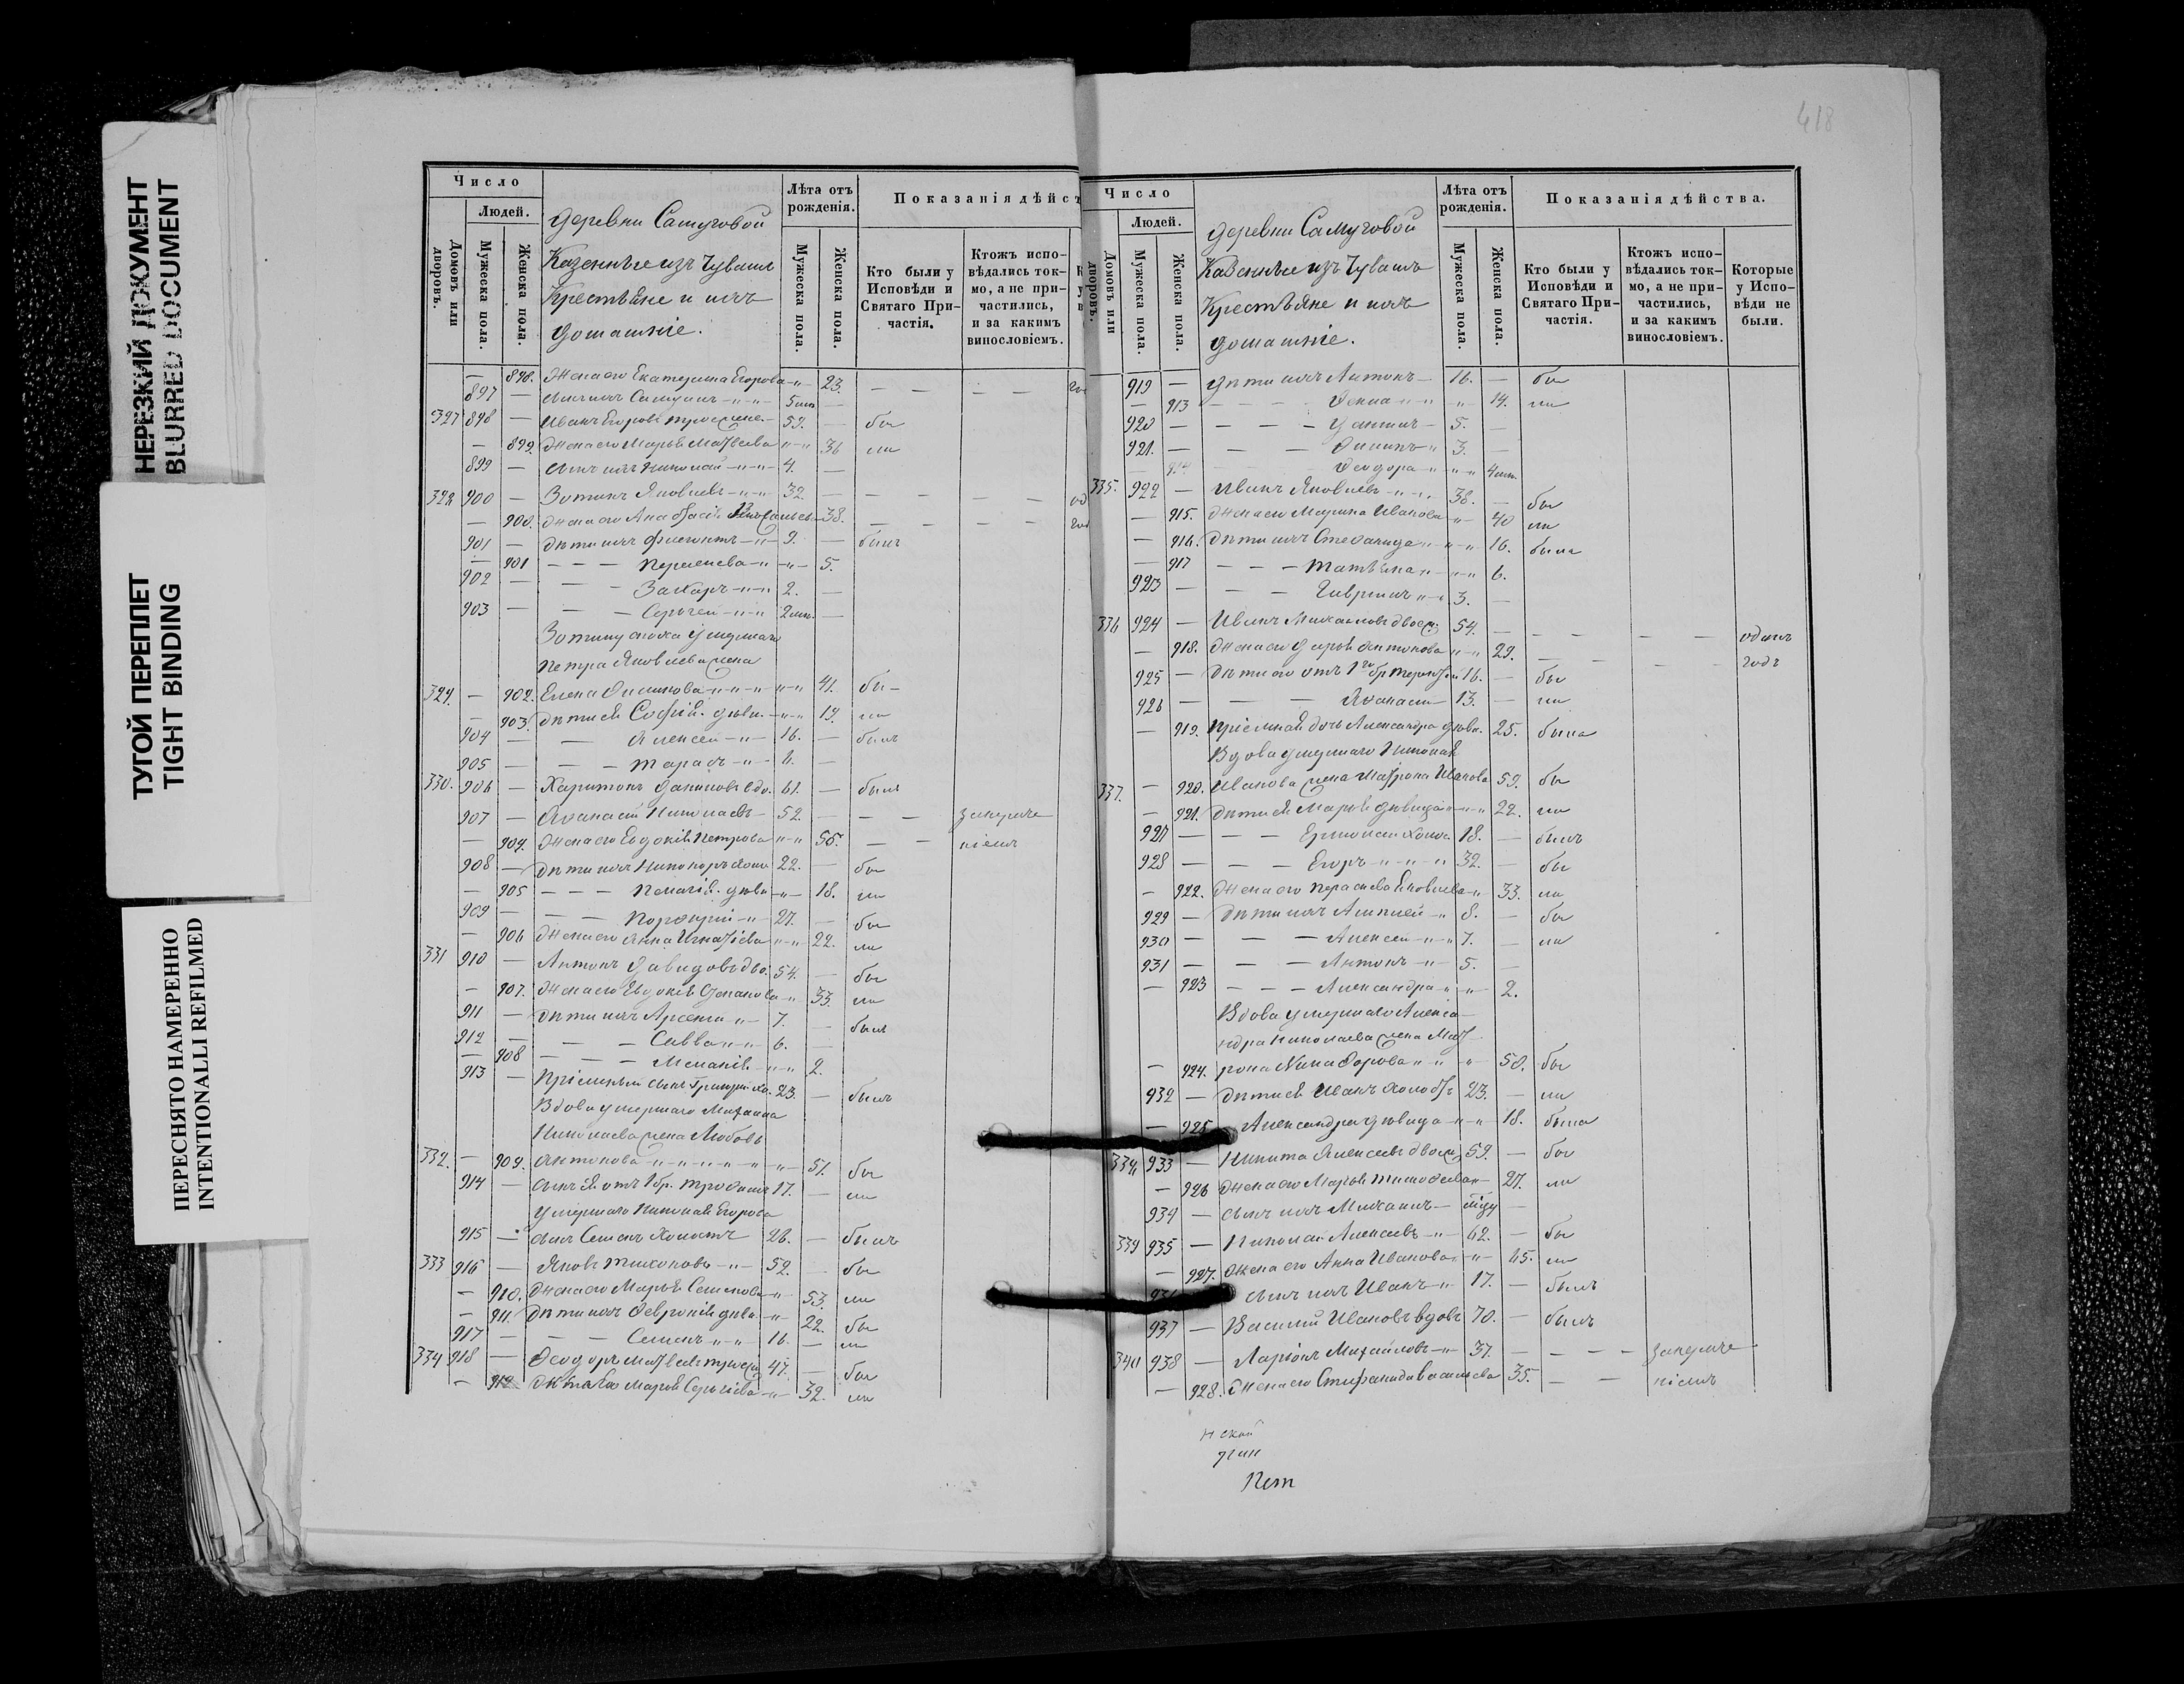 НЕРЕЗКИЙ ДОКУМЕНТ
BLURRED DOCUMENT
ТУГОЙ ПЕРЕПЛЕТ
TIGHT BINDING
ПЕРЕСНЯТО НАМЕРЕННО
INTENTIONALLI REFILMED
Число
Людей.
Домовъ или дворовъ.
Мужеска пола.
Женска пола.
Деревни Самуговой
Казенные изъ Чувашъ
Крестьяне и ихъ
домашніе.
Лѣта отъ рожденія.
Мужеска пола.
Женска пола.
Показанія дѣйст
Кто были у Исповѣди и Святаго При-частія.
Ктожъ испо-вѣдались ток-мо, а не при-частились, и за какимъ винословіемъ.
898. Жена его Екатерина Егорова 23.
897 Сынъ ихъ 5
327 898 Иванъ Егоровъ 59. бы
899. Жена его Марья Матвѣева 36 ли
899 Сынъ ихъ Николай 4.
328 900 Зотикъ Яковлевъ 32.
900. Жена его 38.
901 Дѣти ихъ 9. былъ
901 5.
902 Захаръ 2.
903 Сергѣй 2
умершаго
Петра Яковлева жена
329. 902. Елена 41. бы
903. Дѣти ея Софія дѣви. 19. ли
904 Алексѣй 16. былъ
905 Тарасъ
330. 906 Харитонъ 61. былъ
907 Аѳанасій Николаевъ 52.
904. Жена его Евдокія Петрова 55.
908 Дѣти ихъ Никоноръ 22. бы
905 Пелагія дѣви 18. ли
909 Порфирій 27. бы
906 Жена его Анна Игнатіева 22. ли
331 910 Антонъ Давидовъ 54. бы
907. Жена его Евдокія Степанова 33. ли
911 Дѣти ихъ Арсеній 7. былъ
912 Савва 6.
908 Меланія 2.
913 Пріемный сынъ Григорій Хо. 23. былъ
Вдова умершаго Михаила
Николаева жена Любовь
332. 909. Антонова 51. бы
914 Сынъ ея отъ 1 бр. Трофимъ 17. ли
умершаго Николая Егорова
915 Сынъ Семенъ Холостъ 26. былъ
333 916 Яковъ Тихоновъ 52. бы
910. Жена его Марья Семенова 53. ли
911 Дѣти ихъ Февронія дѣви 22. бы
917 Семенъ 16. ли
334 918 Ѳеодоръ Матвѣевъ 47. бы
912 Жена его Марья Сергѣева 32. ли
418
Число
Людей.
Домовъ или дворовъ.
Мужеска пола.
Женска пола.
Деревни Самуговой
Казенные изъ Чувашъ
Крестьяне и ихъ
домашніе.
Лѣта отъ рожденія.
Мужеска пола.
Женска пола.
Показанія дѣйства.
Кто были у Исповѣди и Святаго При-частія.
Ктожъ испо-вѣдались ток-мо, а не при-частились, и за какимъ винословіемъ.
Которые у Испо-вѣди не были.
919 Дѣти ихъ Антонъ 16. бы
913 14. ли
920 5.
921. 3.
914 Ѳеодора 4
335. 922 Иванъ Яковлевъ 38. бы
915. Жена его Марина Иванова 40 ли
916. Дѣти ихъ Степанида 16. была
917 Татьяна 6.
923 Гаврилъ 3.
336 924 Иванъ Михаиловъ двоеж. 54. одинъ
918. Жена его Дарья Антонова 29. годъ
925 Дѣти его отъ 1го бр. Терентій 16. бы
926 Аѳанасій 13. ли
919. Пріемная дочь Александра дѣви. 25. была
Вдова умершаго Николая
337. 920. Иванова жена Матрона Иванова 59. бы
921. Дѣти ея Марья дѣвица 22. ли
927 Ермолай Холос. 18. былъ
928 Егоръ 32. бы
922. Жена его Парасковья Яковлева 33. ли
929 Дѣти ихъ Алексѣй 8. бы
930 Алексѣй 7. ли
931 Антонъ 5.
923 Александра 2.
Вдова умершаго Алекса-
ндра Николаева жена Мат-
924. рона Никифорова 50. бы
932 Дѣти ея Иванъ Холостъ 23. ли
925 Александра дѣвица 18. была
338 933 Никита Алексѣевъ двоеж. 59. бы
926 Жена его Марья Тимофеева 27. ли
934 Сынъ ихъ Михаилъ
339 935 Николай Алексѣевъ 62. бы
927. Жена его Анна Иванова 65. ли
Сынъ ихъ Иванъ 17. былъ
937 Василій Ивановъ вдовъ 70. былъ
340 938 Ларіонъ Михайловъ 37.
928. Жена его Стефанида Васильева 35.